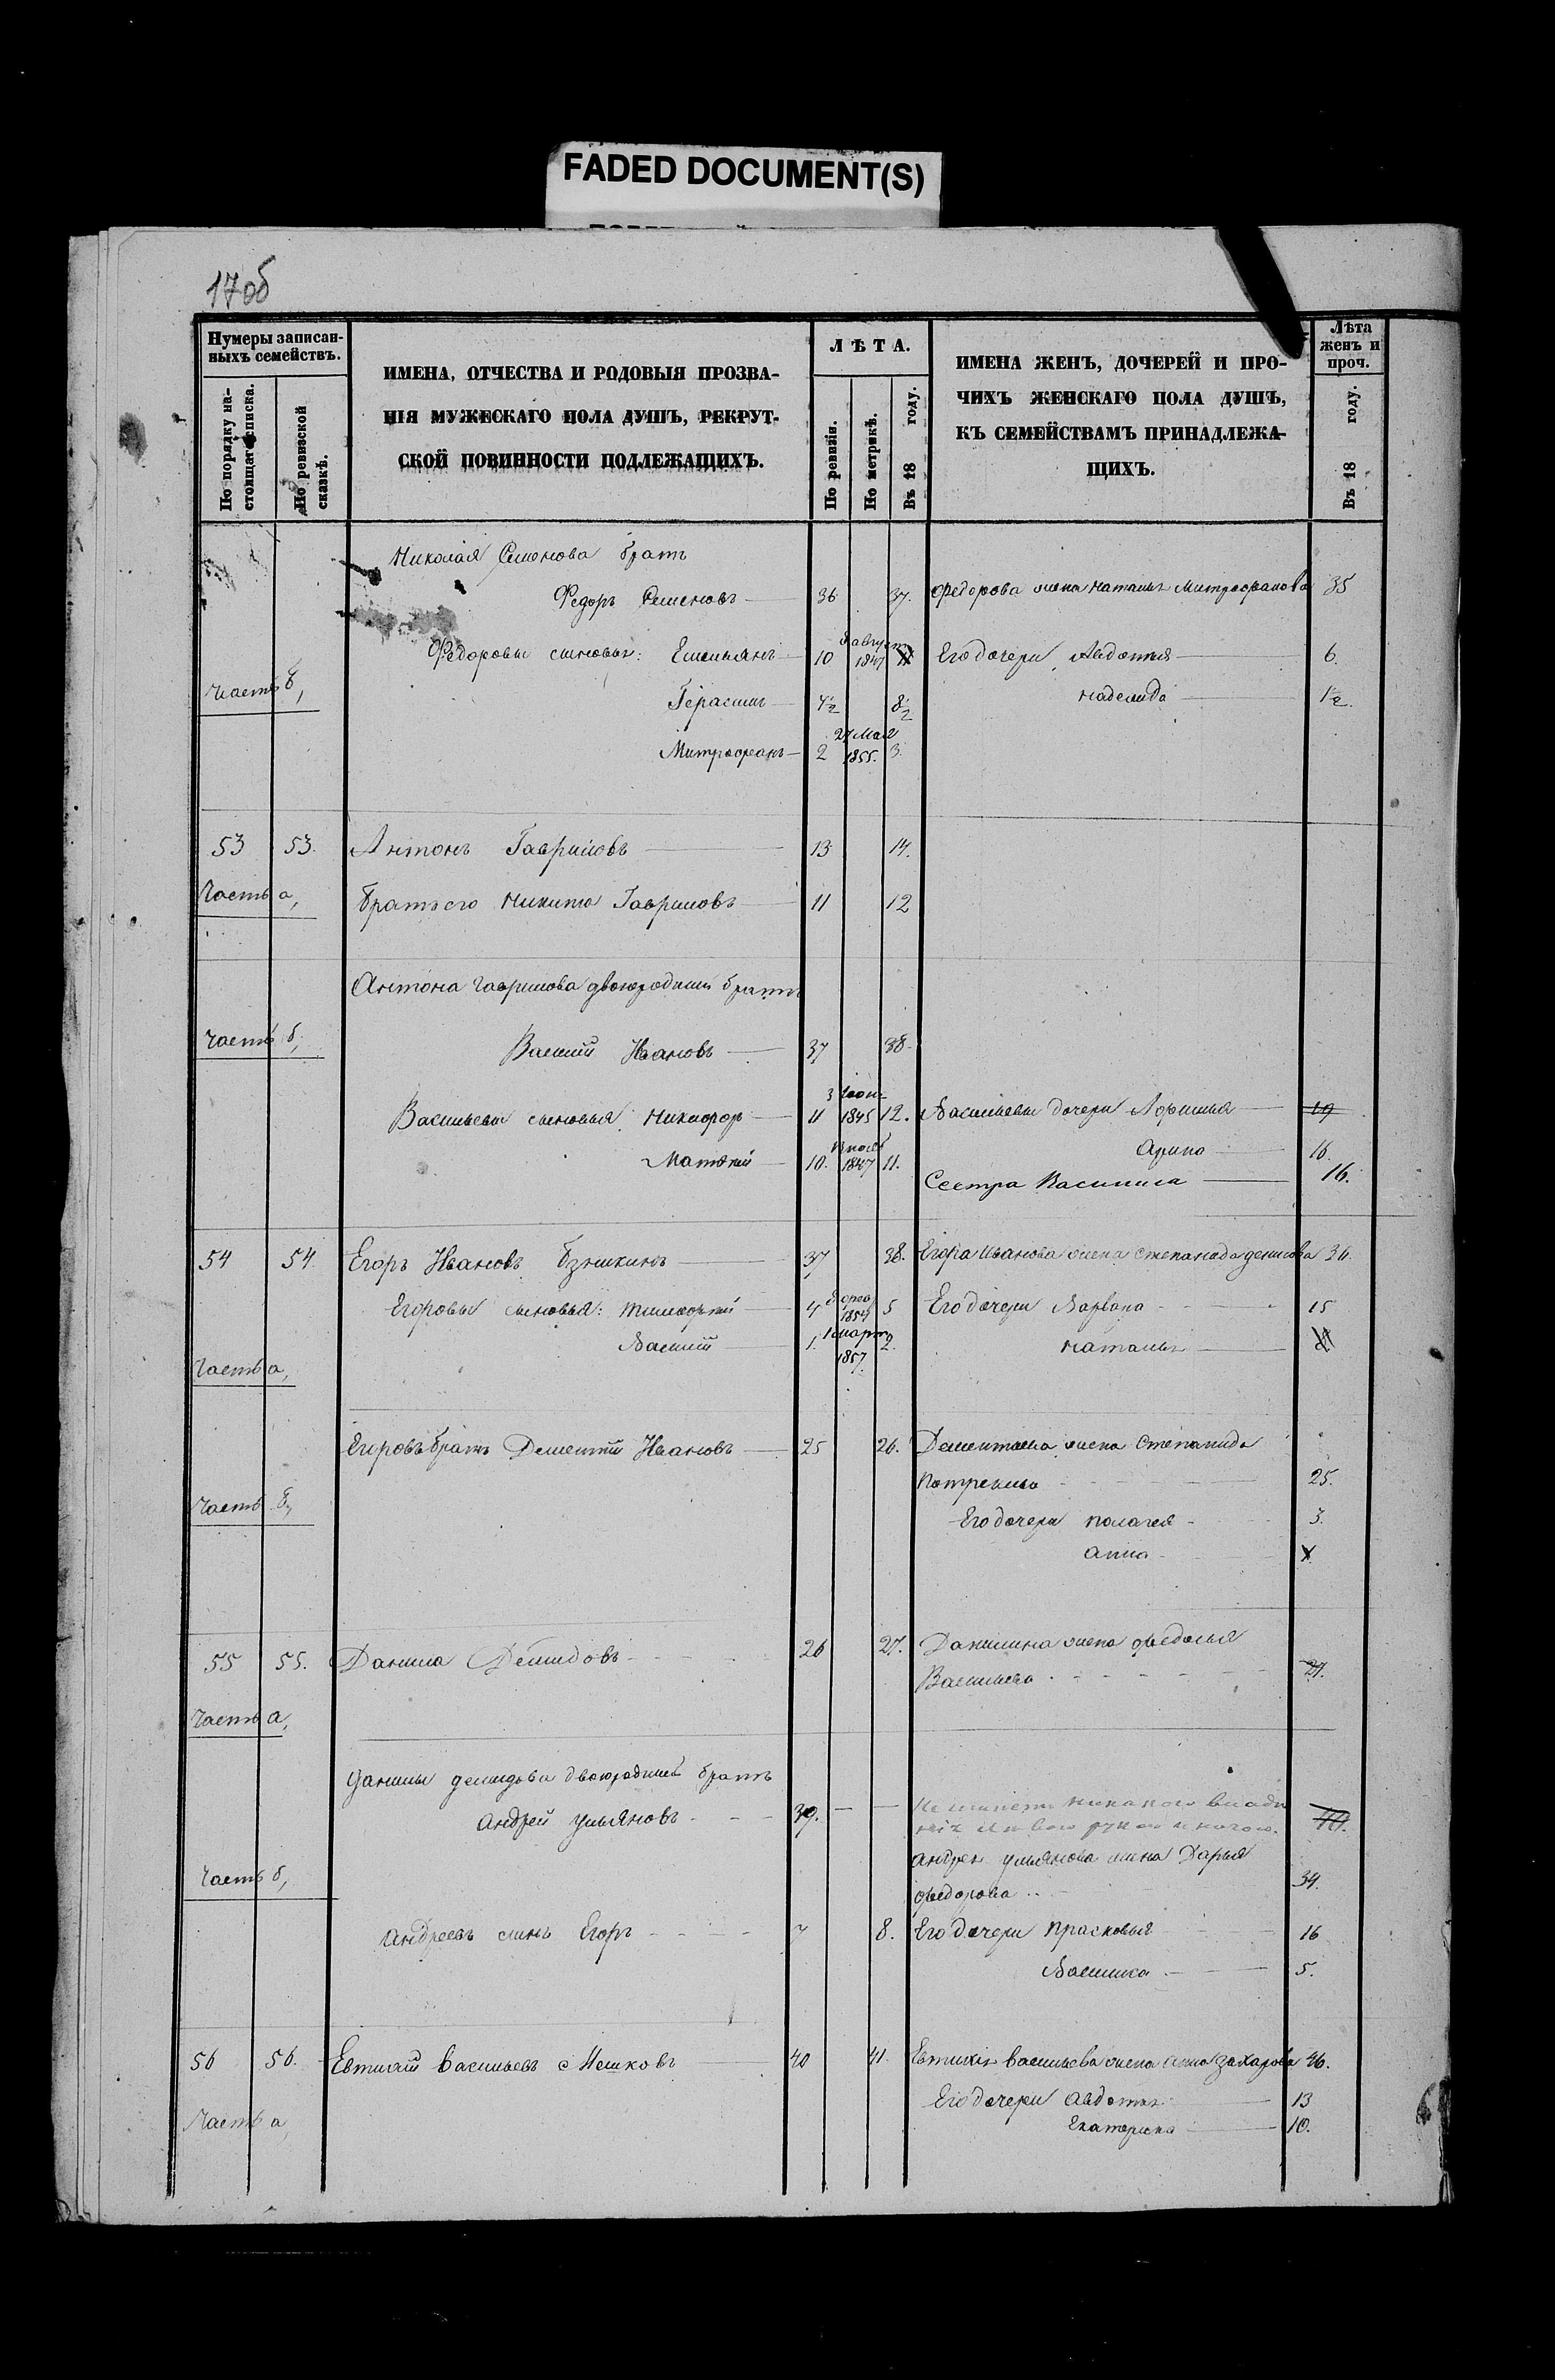 FADED DOCUMENT(S)
17об
Нумеры записан-
ныхъ семействъ.
По порядку на-
стоящаго списка.
По ревизской
сказкѣ.
ИМЕНА, ОТЧЕСТВА И РОДОВЫЯ ПРОЗВА-
НІЯ МУЖЕСКАГО ПОЛА ДУШЪ, РЕКРУТ-
СКОЙ ПОВИННОСТИ ПОДЛЕЖАЩИХЪ.
ЛѢТА.
По ревизіи.
По метрикѣ.
Въ 18 году.
ИМЕНА ЖЕНЪ, ДОЧЕРЕЙ И ПРО-
ЧИХЪ ЖЕНСКАГО ПОЛА ДУШЪ,
КЪ СЕМЕЙСТВАМЪ ПРИНАДЛЕЖА-
ЩИХЪ.
Лѣта
женъ и
проч.
Въ 18 году.
Николая Семенова братъ
Федоръ Семеновъ 36 37. Федорова жена Наталья Митрофанова 35
Федоровы сыновья: Емельянъ 10 8 август 1847 Его дочери Авдотья 6.
Часть б,
Герасимъ 7½ 8½ Наделида 1½.
Митрофанъ 2 27 Мая 1855. 3.
53 53. Антонъ Гавриловъ 13 14.
Часть а, братъ его Никита Гавриловъ 11 12
Антона Гаврилова двоюродный братъ
Часть б, Василій Ивановъ 37 38.
Васильевы сыновья: Никифоръ 11 3 1845 12. Васильевы дочери 19
Матвей 10. 1847 11. Арина 16.
Сестра Василиса 16.
54 54. Егоръ Ивановъ 37 38. Егора Иванова жена Степанида Денисова 36.
Егоровы сыновья: Тимофей 4 1854 5 Его дочери Варвара 15
Василій 1. 1 март 1857. 2. Наталья
Часть а,
Егоровъ братъ Дементій Ивановъ 25 26. Дементьева жена Степанида
25.
Часть б,
Его дочери Пелагея 3.
Анна
55 55. Данила Демидовъ 26 27. Данилина жена Федосья
Васильева 27.
Часть а,
Данилы Демидова двоюродный братъ
Андрей Ульяновъ 39.
Андрея Ульянова жена Дарья
Часть б, Федорова 34.
Андреевъ сынъ Егоръ 7 8. Его дочери Прасковья 16
Василиса 5.
56 56. Евтихій Васильевъ 40 41. Евтихія Васильева жена Анна Захарова 46.
Его дочери Авдотья 13
Часть а, Екатерина 10.